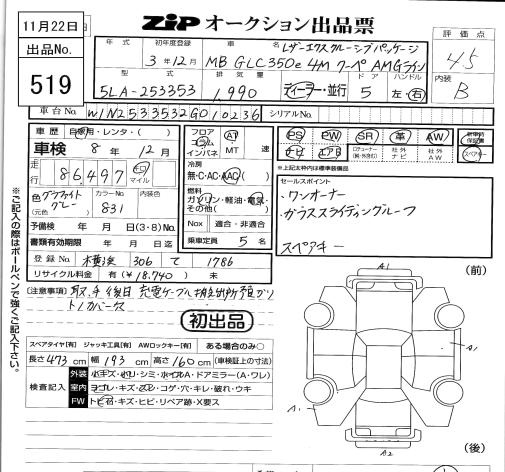 11月22日
出品No.
519
ZIP オークション出品票
評価点
4.5
内装
B
年式
初年度登録
3年12月
車名
レザーエクスクルーシブパッケージ
MB GLC350e 4M クーペ AMGライン
型式
5LA-253353
排気量
1,990
ディーラー・並行
ドア
5
ハンドル
左・右
車台No.
W1N2533532G010236
シリアルNo.
車歴 自家用・レンタ・( )
車検 8年12月
走行
86,497
マイル
色
グラファイトグレー
(元色)
カラーNo.
831
内装色
予備検 年 月 日(3・8)No.
書類有効期限 年 月 日迄
フロア
コラム
インパネ
AT
MT 速
冷房
無・C・AC・AAC
燃料
ガソリン・軽油・電気・
その他( )
NOX 適合・非適合
乗車定員 5 名
PS PW SR 革 AW
ナビ エアB
社外ナビ
社外AW
新車時保証書
スペアキー
*上記太枠内は標準装備品
セールスポイント
・ワンオーナー
・ガラススライディングルーフ
スペアキー
登録No. 横浜 306 て 1786
リサイクル料金 有(¥18,740) 未
(注意事項)
トノカバー欠
初出品
スペアタイヤ[有] ジャッキ工具[有] AWロックキー[有] ある場合のみ○
長さ473cm 幅193cm 高さ160cm (車検証上の寸法)
検査記入
外装 小キズ・小ヘコリ・シミ・ホイルA・ドアミラー(A・ワレ)
室内 ヨゴレ・キズ・スレ・コゲ・穴・キレ・破れ・ウキ
FW トビ石・キズ・ヒビ・リペア跡・X要ス
(前)
A1
A1
A1
A2
(後)
※ご記入の際はボールペンで強くご記入下さい。